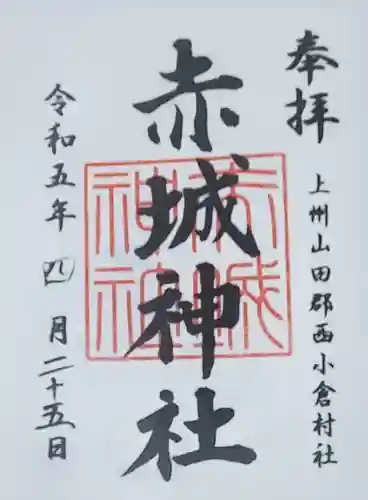 奉拝
上州山田郡西小倉村社
赤城神社
赤城神社
令和五年 四 月二十五日